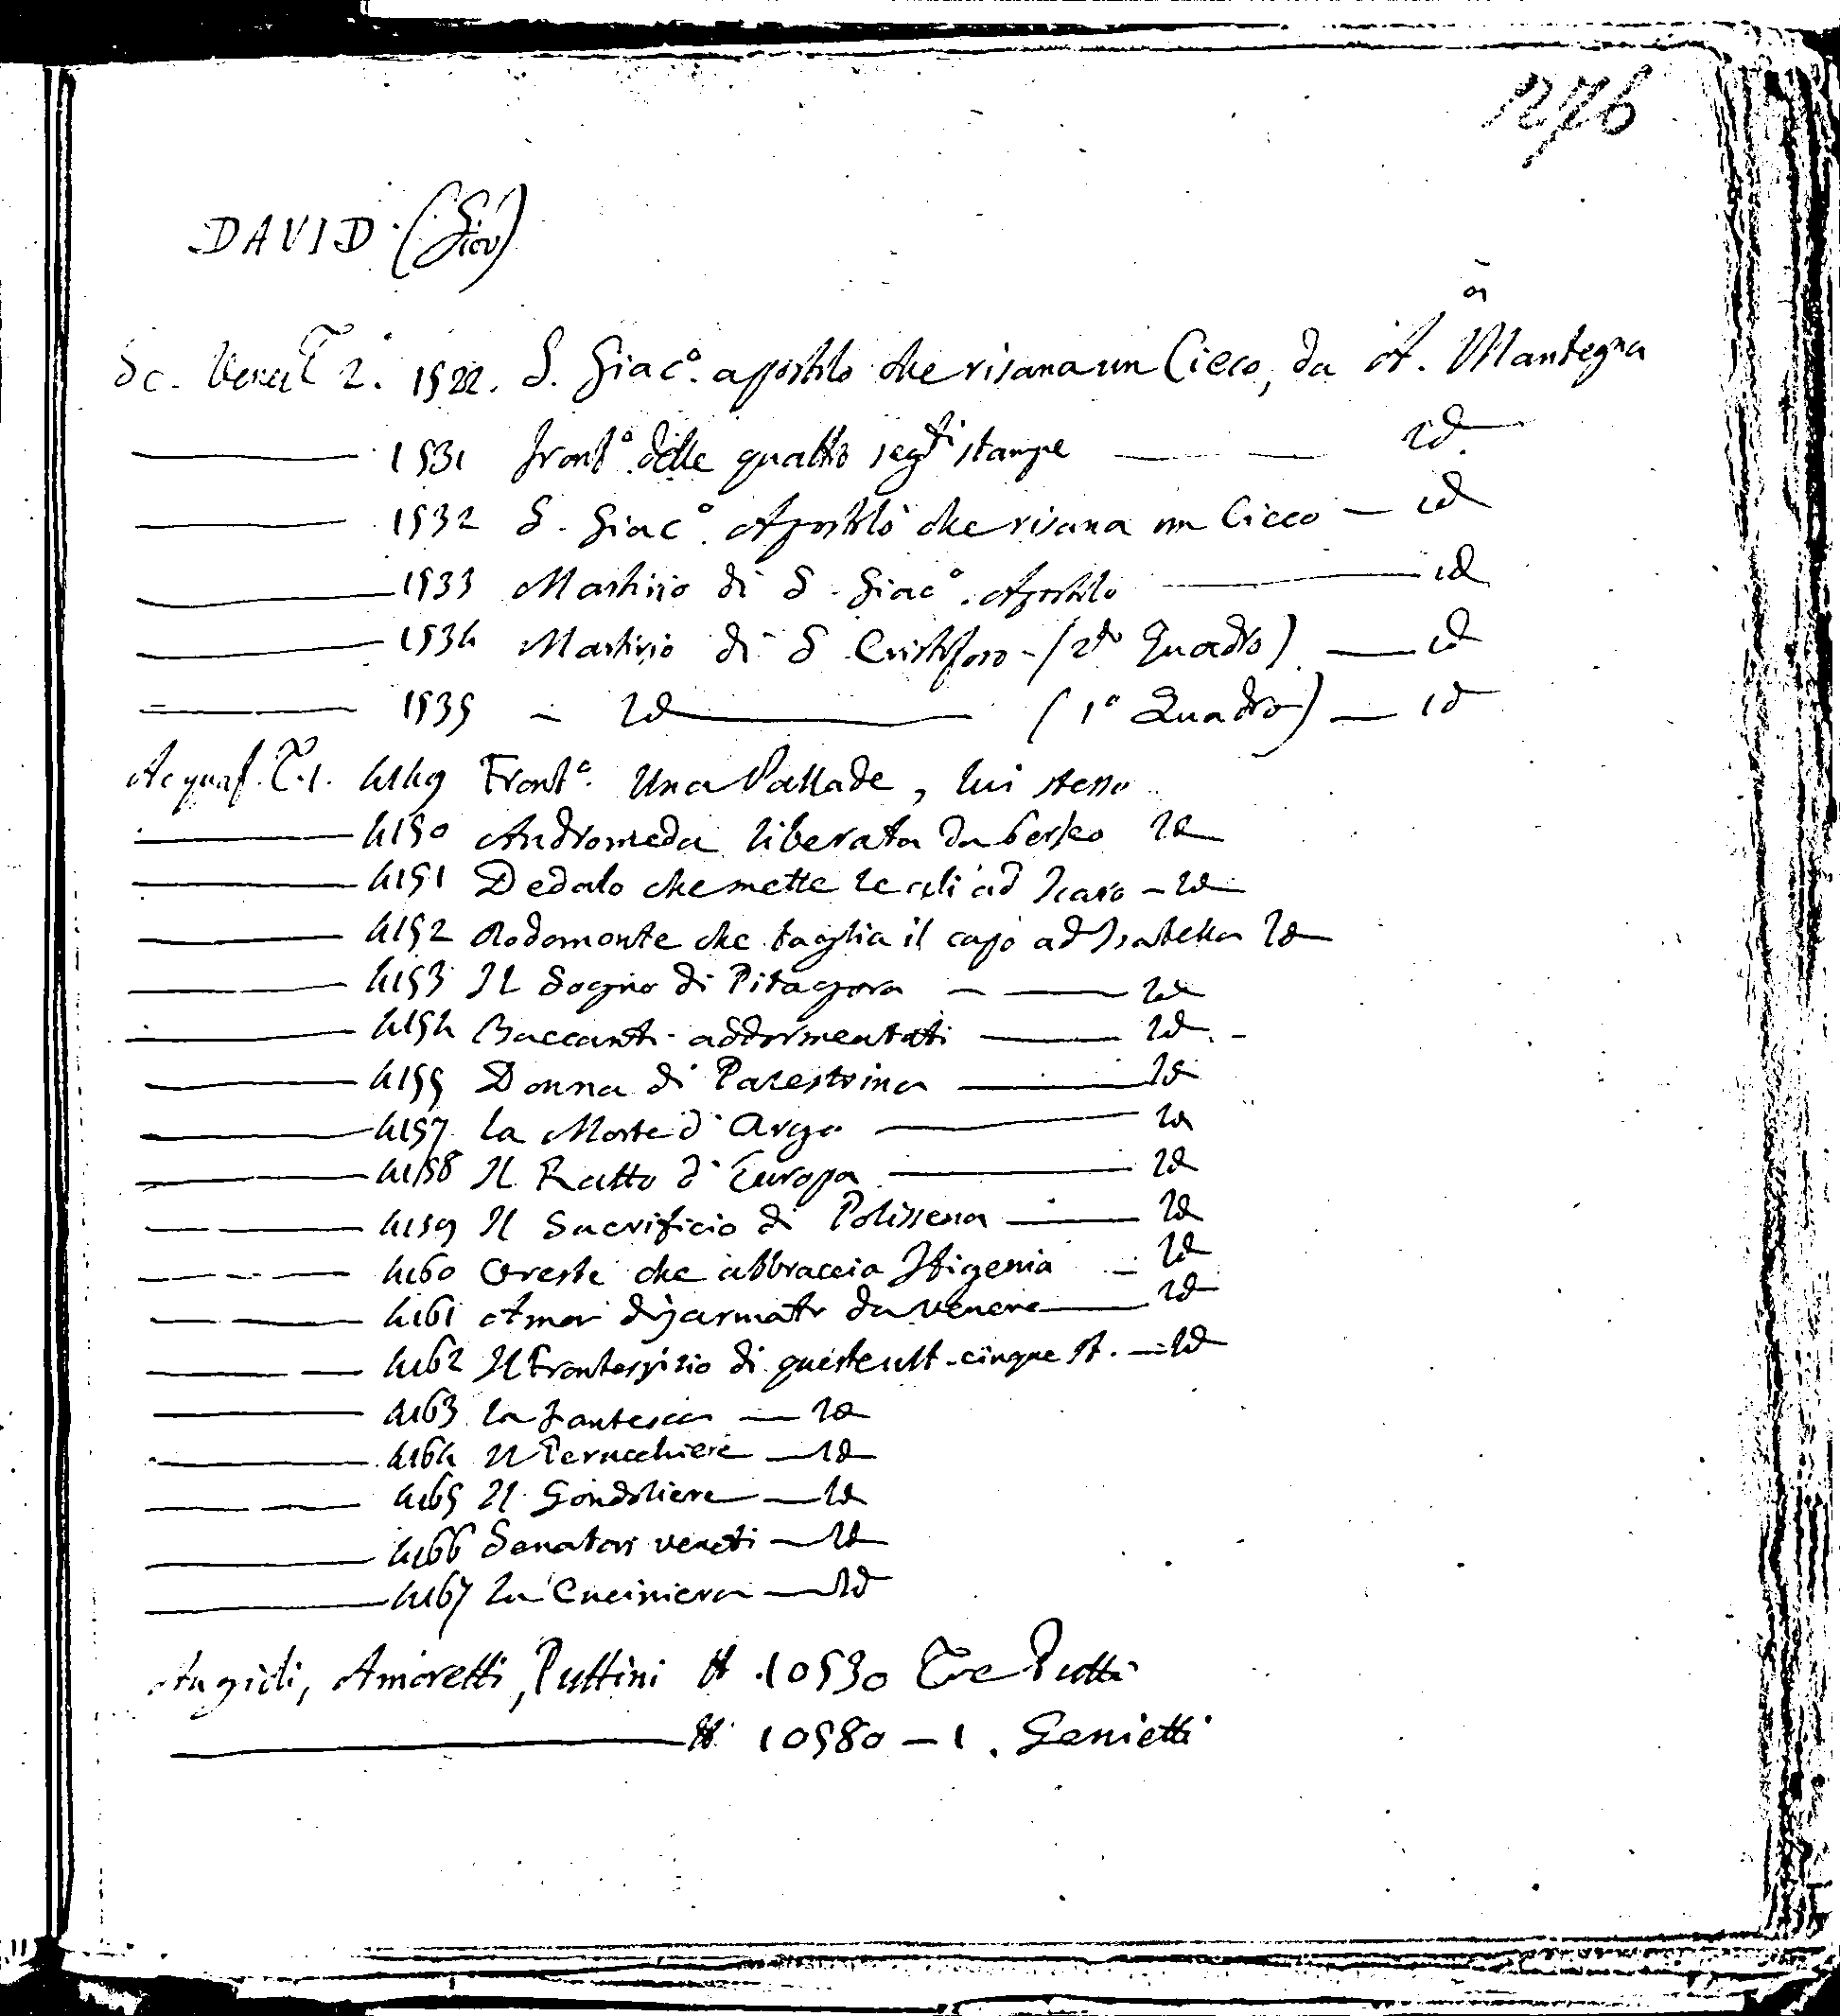 1276
DAVID (Giov)
Sc. Venet T 2. 1522. S. Giac.º apostolo che risana un Cieco, da A. Mantegna
1531 front.º delle quattro seg.ti stampe — — id.
1532 S. Giac.º Apostolo che risana un Cieco — id
1533 Martirio di S. Giac.º Apostolo — id
1534 Martirio di S Cristoforo - (2do Quadro) — id
1535 - Id — (1º Quadro) — id
Acquaf. T. 1. 4149 Front.º Una Pallade, lui stesso
4150 Andromeda liberata da Perseo Id
4151 Dedalo che mette le ali ad Icaro - Id
4152 Rodomonte che taglia il capo ad Isabella Id
4153 Il Sogno di Pitagora - — Id
4154 Baccanti addormentati — Id. -
4155 Donna di Palestrina — Id
4157 la Morte d'Argo — Id
4158 Il Ratto d'Europa — Id
4159 Il Sacrificio di Polissena — Id
4160 Oreste che abbraccia Ifigenia - Id
4161 Amor disarmato da Venere — Id
4162 Il Frontespizio di queste ult. cinque st. - Id
4163 la fantesca — Id
4164 Il Perucchiere — Id
4165 Il Gondoliere — Id
4166 Senatori veneti — Id
4167 la Cuciniera — Id
Angioli, Amoretti, Puttini # 10530 Tre Putti
# 10580 - 1. Genietti